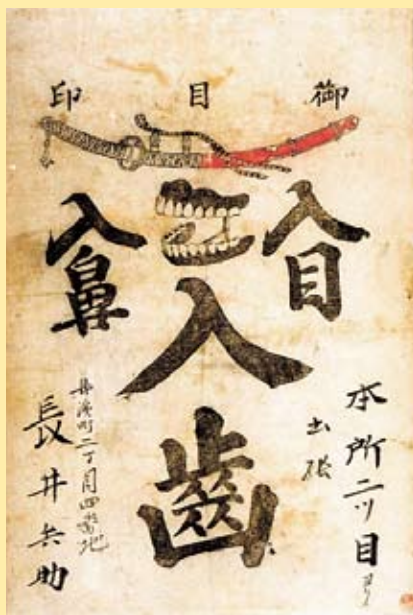 御目印
入目
入齒
入鼻
本所二ツ目ヨリ
出張
町二丁目四番地
長井兵助